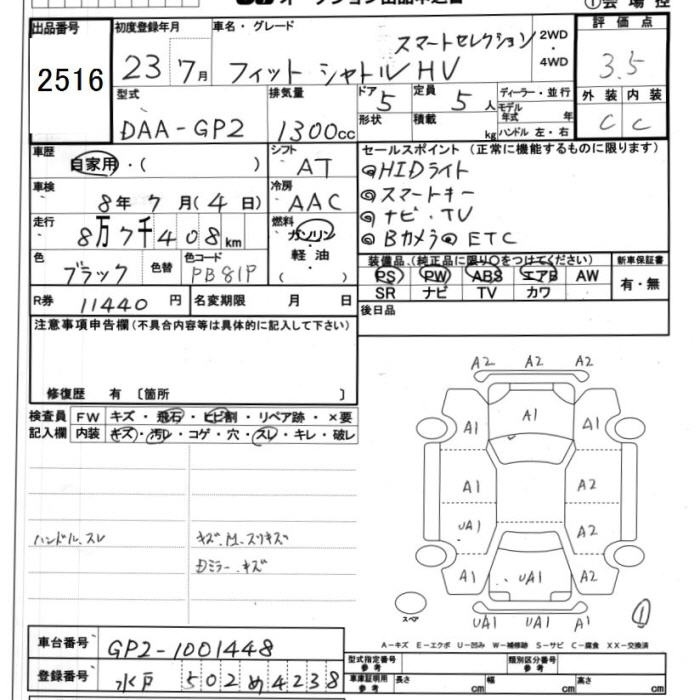 オークション出品申込書
①会場控
出品番号
2516
初度登録年月
23 7月
車名・グレード
スマートセレクション
フィット シャトル HV
2WD
・
4WD
評価点
3.5
型式
DAA-GP2
排気量
1300cc
ドア 5
形状
定員 5人
積載 kg
ディーラー・並行
モデル年式 年
ハンドル 左・右
外装 内装
C C
車歴
自家用・( )
シフト
AT
セールスポイント (正常に機能するものに限ります)
◎HIDライト
◎スマートキー
◎ナビ・TV
◎Bカメラ◎ETC
車検
8年 7月(4日)
冷房
AAC
走行
8万7千408km
燃料
ガソリン
・
軽油
( )
色
ブラック
色替
色コード
PB81P
装備品 (純正品に限り○をつけてください)
PS PW ABS エアB AW
SR ナビ TV カワ
新車保証書
有・無
R券 11440円
名変期限 月 日
後日品
注意事項申告欄 (不具合内容等は具体的に記入して下さい)
修復歴 有 〔箇所 〕
検査員
記入欄
FW キズ・飛石・ヒビ割・リペア跡・×要
内装 キズ・汚レ・コゲ・穴・スレ・キレ・破レ
ハンドル.スレ
キズ.M.スリキズ
Dミラー.キズ
A2 A2 A2
A1 A1 A1
A1 A2
UA1 A2
A1 UA1 A2
UA1 UA1 A1
スペア
①
A-キズ E-エクボ U-凹み W-補修跡 S-サビ C-腐食 XX-交換済
車台番号
GP2-1001448
登録番号
水戸 502 め 4238
型式指定番号
参考
類別区分番号
参考
車庫証明用
参考
長さ cm 幅 cm 高さ cm